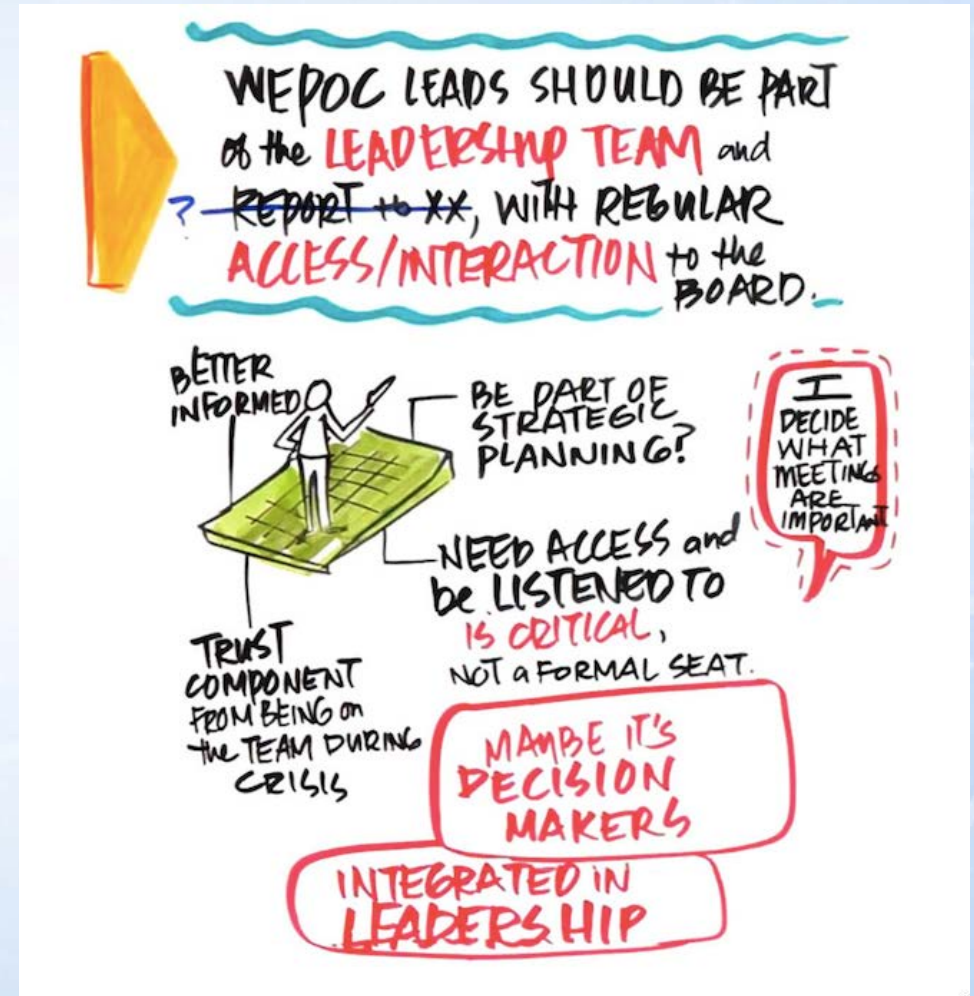 WEPOC LEADS SHOULD BE PART
of the LEADERSHIP TEAM and
? REPORT to XX, WITH REGULAR
ACCESS/INTERACTION to the
BOARD.
BETTER
INFORMED
BE PART OF
STRATEGIC
PLANNING?
I
DECIDE
WHAT
MEETINGS
ARE
IMPORTANT
NEED ACCESS and
be LISTENED TO
IS CRITICAL,
NOT a FORMAL SEAT.
TRUST
COMPONENT
FROM BEING on
the TEAM DURING
CRISIS
MAYBE IT'S
DECISION
MAKERS
INTEGRATED IN
LEADERSHIP